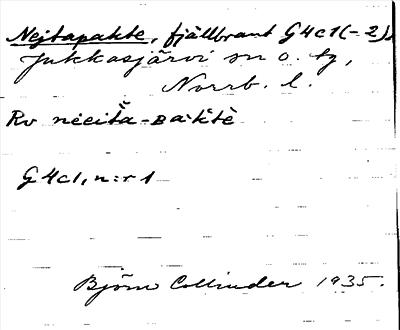 Nejtapakte, fjällbrant G4c1(-2),
Jukkasjärvi sn o. tg,
Norrb. l.
Rv nèeiťa-ʙàktè
G4c1, n:r 1
Björn Collinder 1935.